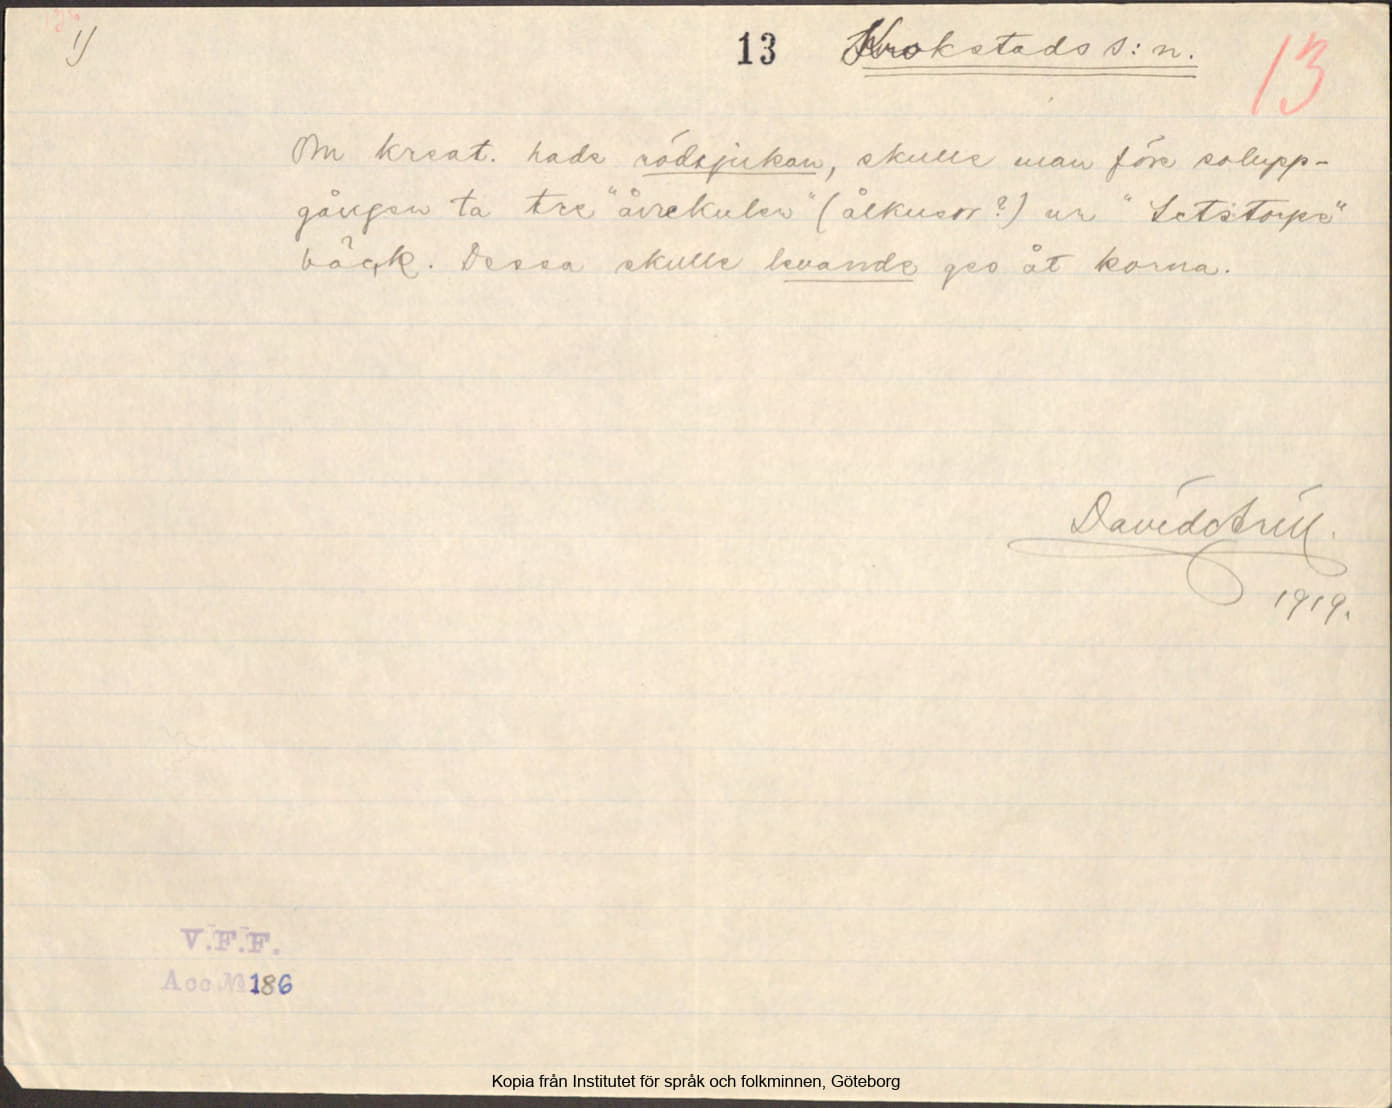 1)
13 Krokstads s:n. 13
Om kreat. hade rödsjukan, skulle man före solupp-
gången ta tre "åvekuler" (ålkusor?) ur "Setstorps"
bäck. Dessa skulle levande ges åt korna.
David Arill.
1919.
V.F.F.
Acc. № 186
Kopia från Institutet för språk och folkminnen, Göteborg